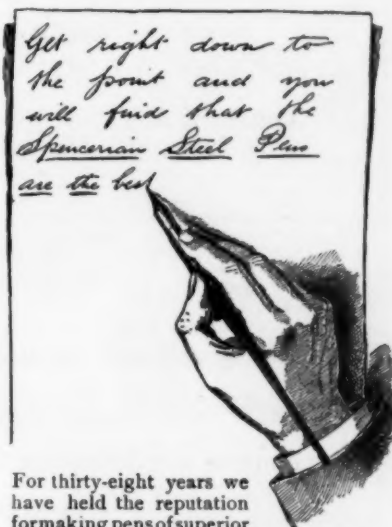 Get right down to
the point and you
will find that the
Spencerian Steel Pens
are the best
For thirty-eight years we
have held the reputation
for making pens of superior